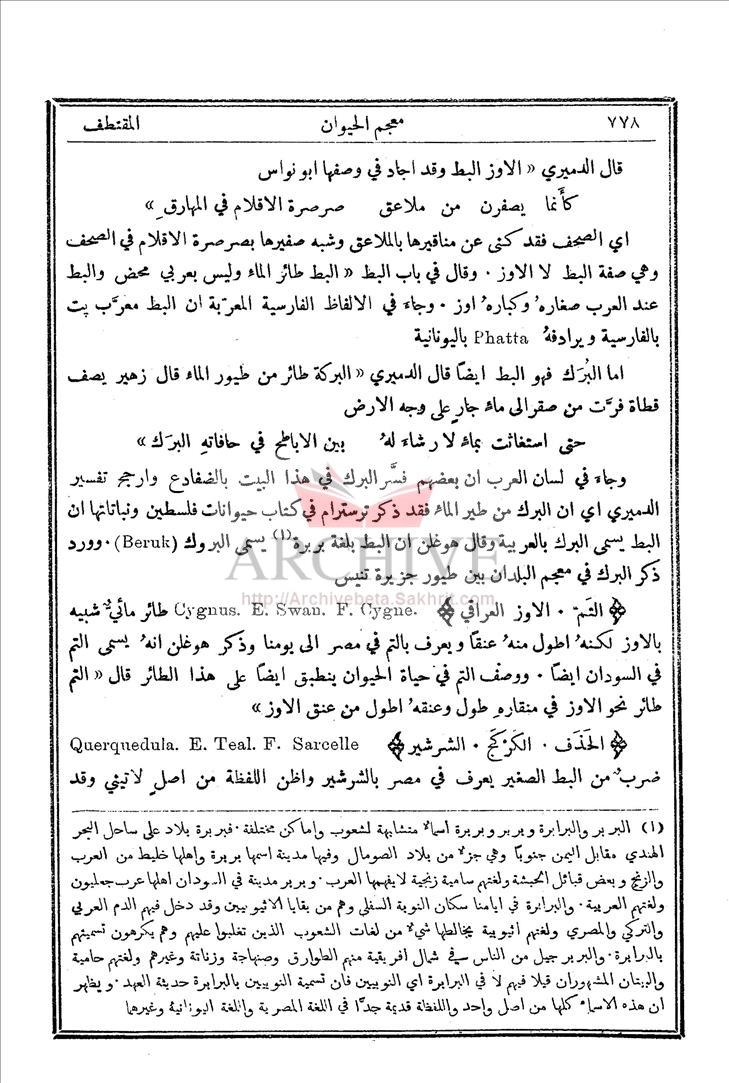 ٧٧٨ معجم الحيوان المقتطف
قال الدميري « الاوز البط وقد اجاد في وصفها ابو نواس
كأَنما يصفرن من ملاعق صرصرة الاقلام في المهارقِ »
اي الصحف فقد كنى عن مناقيرها بالملاعق وشبه صفيرها بصرصرة الاقلام في الصحف
وهي صفة البط لا الاوز . وقال في باب البط « البط طائر الماء وليس بعربي محض والبط
عند العرب صغارهُ وكبارهُ اوز . وجاءَ في الالفاظ الفارسية المعرّبة ان البط معرَّب بت
بالفارسية ويرادفهُ Phatta باليونانية
اما البُرَك فهو البط ايضاً قال الدميري « البركة طائر من طيور الماء قال زهير يصف
قطاة فرَّت من صقر الى ماءٍ جارٍ على وجه الارض
حتى استغاثت بماءٍ لا رشاءَ لهُ بين الاباطح في حافاتهِ البرَك »
وجاءَ في لسان العرب ان بعضهم فسَّر البرك في هذا البيت بالضفادع وارجح تفسير
الدميري اي ان البرك من طير الماء فقد ذكر ترسترام في كتاب حيوانات فلسطين ونباتاتها ان
البط يسمى البرك بالعربية وقال هوغلن ان البط بلغة بربرة(١) يسمى البروك (Beruk) . وورد
ذكر البرك في معجم البلدان بين طيور جزيرة تنيس
﴿ التَمّ . الاوز العراقي ﴾ Cygnus. E. Swan. F. Cygne. طائر مائيٌّ شبيه
بالاوز لكنهُ اطول منهُ عنقاً ويعرف بالتم في مصر الى يومنا وذكر هوغلن انهُ يسمى التم
في السودان ايضاً . ووصْف التم في حياة الحيوان ينطبق ايضاً على هذا الطائر قال « التم
طائر نحو الاوز في منقارهِ طول وعنقهُ اطول من عنق الاوز »
﴿ الحَذَف . الكَرْكَج . الشرشير ﴾ Querquedula. E. Teal. F. Sarcelle
ضربٌ من البط الصغير يعرف في مصر بالشرشير واظن اللفظة من اصلٍ لاتيني وقد
(١) البربر والبرابرة و بربر وبربرة اسماءٌ متشابهة لشعوب واماكن مختلفة . فبربرة بلاد على ساحل البحر
الهندي مقابل اليمن جنوباً وهي جزءٌ من بلاد الصومال وفيها مدينة اسمها بربرة واهلها خليط من العرب
والزنج وبعض قبائل الحبشة ولغتهم سامية زنجية لا يفهمها العرب . وبربر مدينة في السودان اهلها عرب جعليون
ولغتهم العربية . والبرابرة في ايامنا سكان النوبة السفلى وهم من بقايا الاثيوبيين وقد دخل فيهم الدم العربي
والتركي والمصري ولغتهم اثيوبية يخالطها شيءٌ من لغات الشعوب الذين تغلبوا عليهم وهم يكرهون تسميتهم
بالبرابرة . والبربر جيل من الناس في شمال افريقية منهم الطوارق وصنهاجة وزناتة وغيرهم ولغتهم حامية
والبيتان المشهوران قيلا فيهم لا في البرابرة اي النوبيين فان تسمية النوبيين بالبرابرة حديثة العهد . ويظهر
ان هذه الاسماء كلها من اصل واحد واللفظة قديمة جدًّا في اللغة المصرية واللغة اليونانية وغيرهما
ARCHIVE
http://Archivebeta.Sakhrit.com